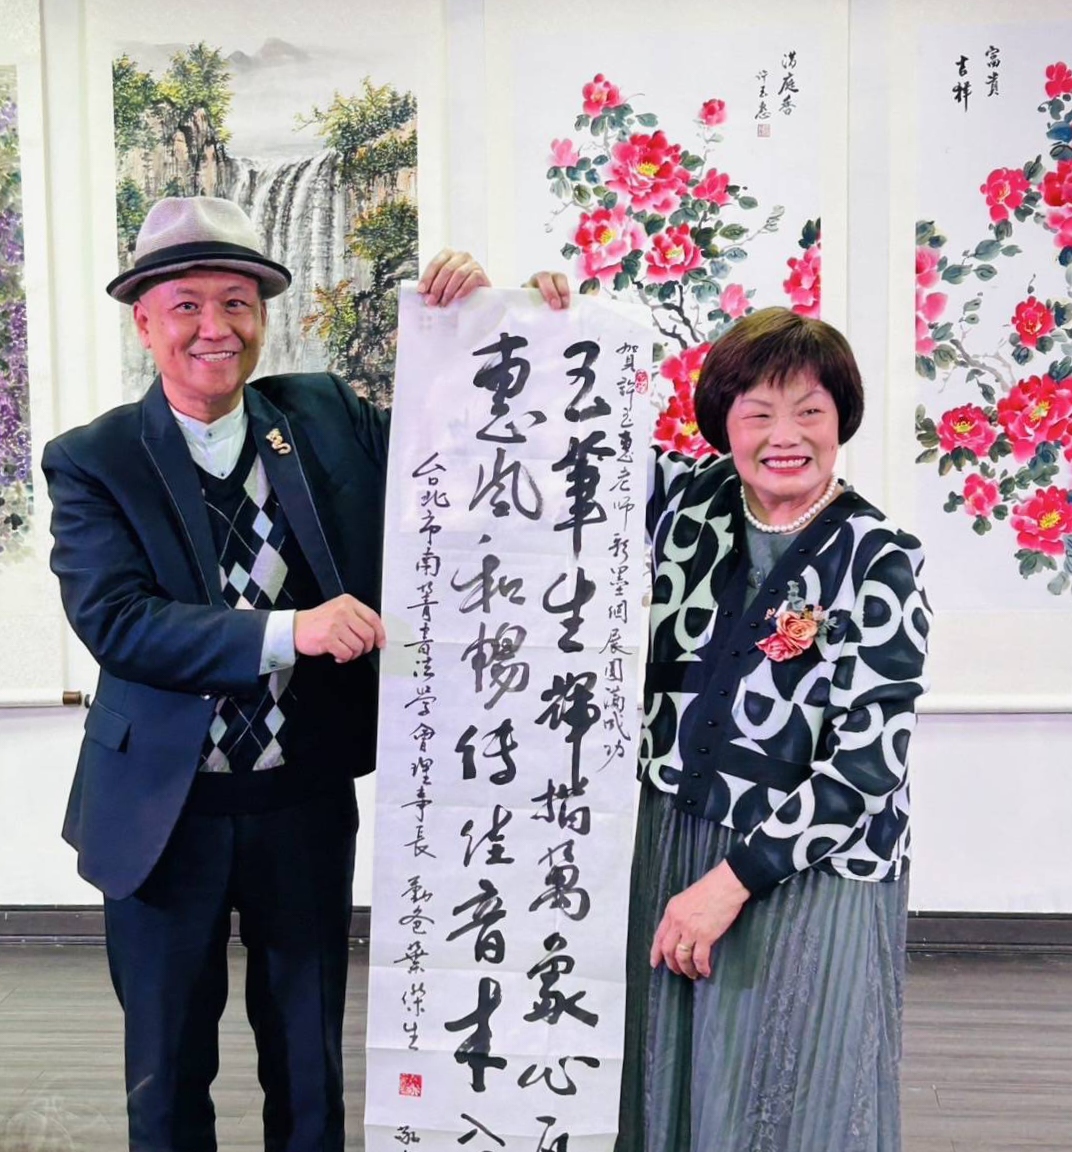 滿庭香
許玉惠
富貴
吉祥
賀許玉惠老師彩墨個展圓滿成功
玉筆生輝描萬象心
惠風和暢傳佳音來入
台北市南菁書法學會理事長
葉傑生
敬